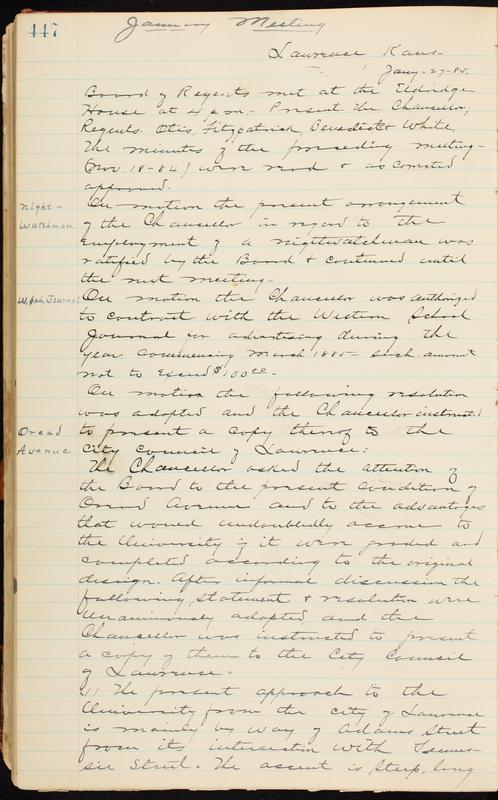 447
January Meeting
Lawrence Kans-
Jany-27-85.
Board of Regents met at the Eldridge
House at 4 p.m.- Present the Chancellor,
Regents Otis, Fitzpatrick, Benedict & White,
The minutes of the preceding meeting-
(Nov. 18-84) were read & as corrected
approved.
Night-
Watchman
On motion the present arrangement
of the Chancellor in regard to the
employment of a nightwatchman was
ratified by the Board & continued until
the next meeting.
W. Sch. Journal
On motion the Chancellor was authorized
to contract with the Western School
Journal for advertising during the
year, commencing March 1885- such amount
not to exceed $100.00.
On motion the following resolution
was adopted and the Chancellor instructed
Oread
Avenue
to present a copy thereof to the
City Council of Lawrence:
The Chancellor asked the attention of
the Board to the present condition of
Oread Avenue and to the advantages
that would undoubtedly accrue to
the University if it were graded and
completed according to the original
design. After informal discussion the
following statement & resolution were
unanimously adopted, and the
Chancellor was instructed to present
a copy of them to the City Council
of Lawrence.
(1) The present approach to the
University from the city of Lawrence
is mainly by way of Adams Street
from its intersection with Tennes-
see Street. The ascent is steep, long